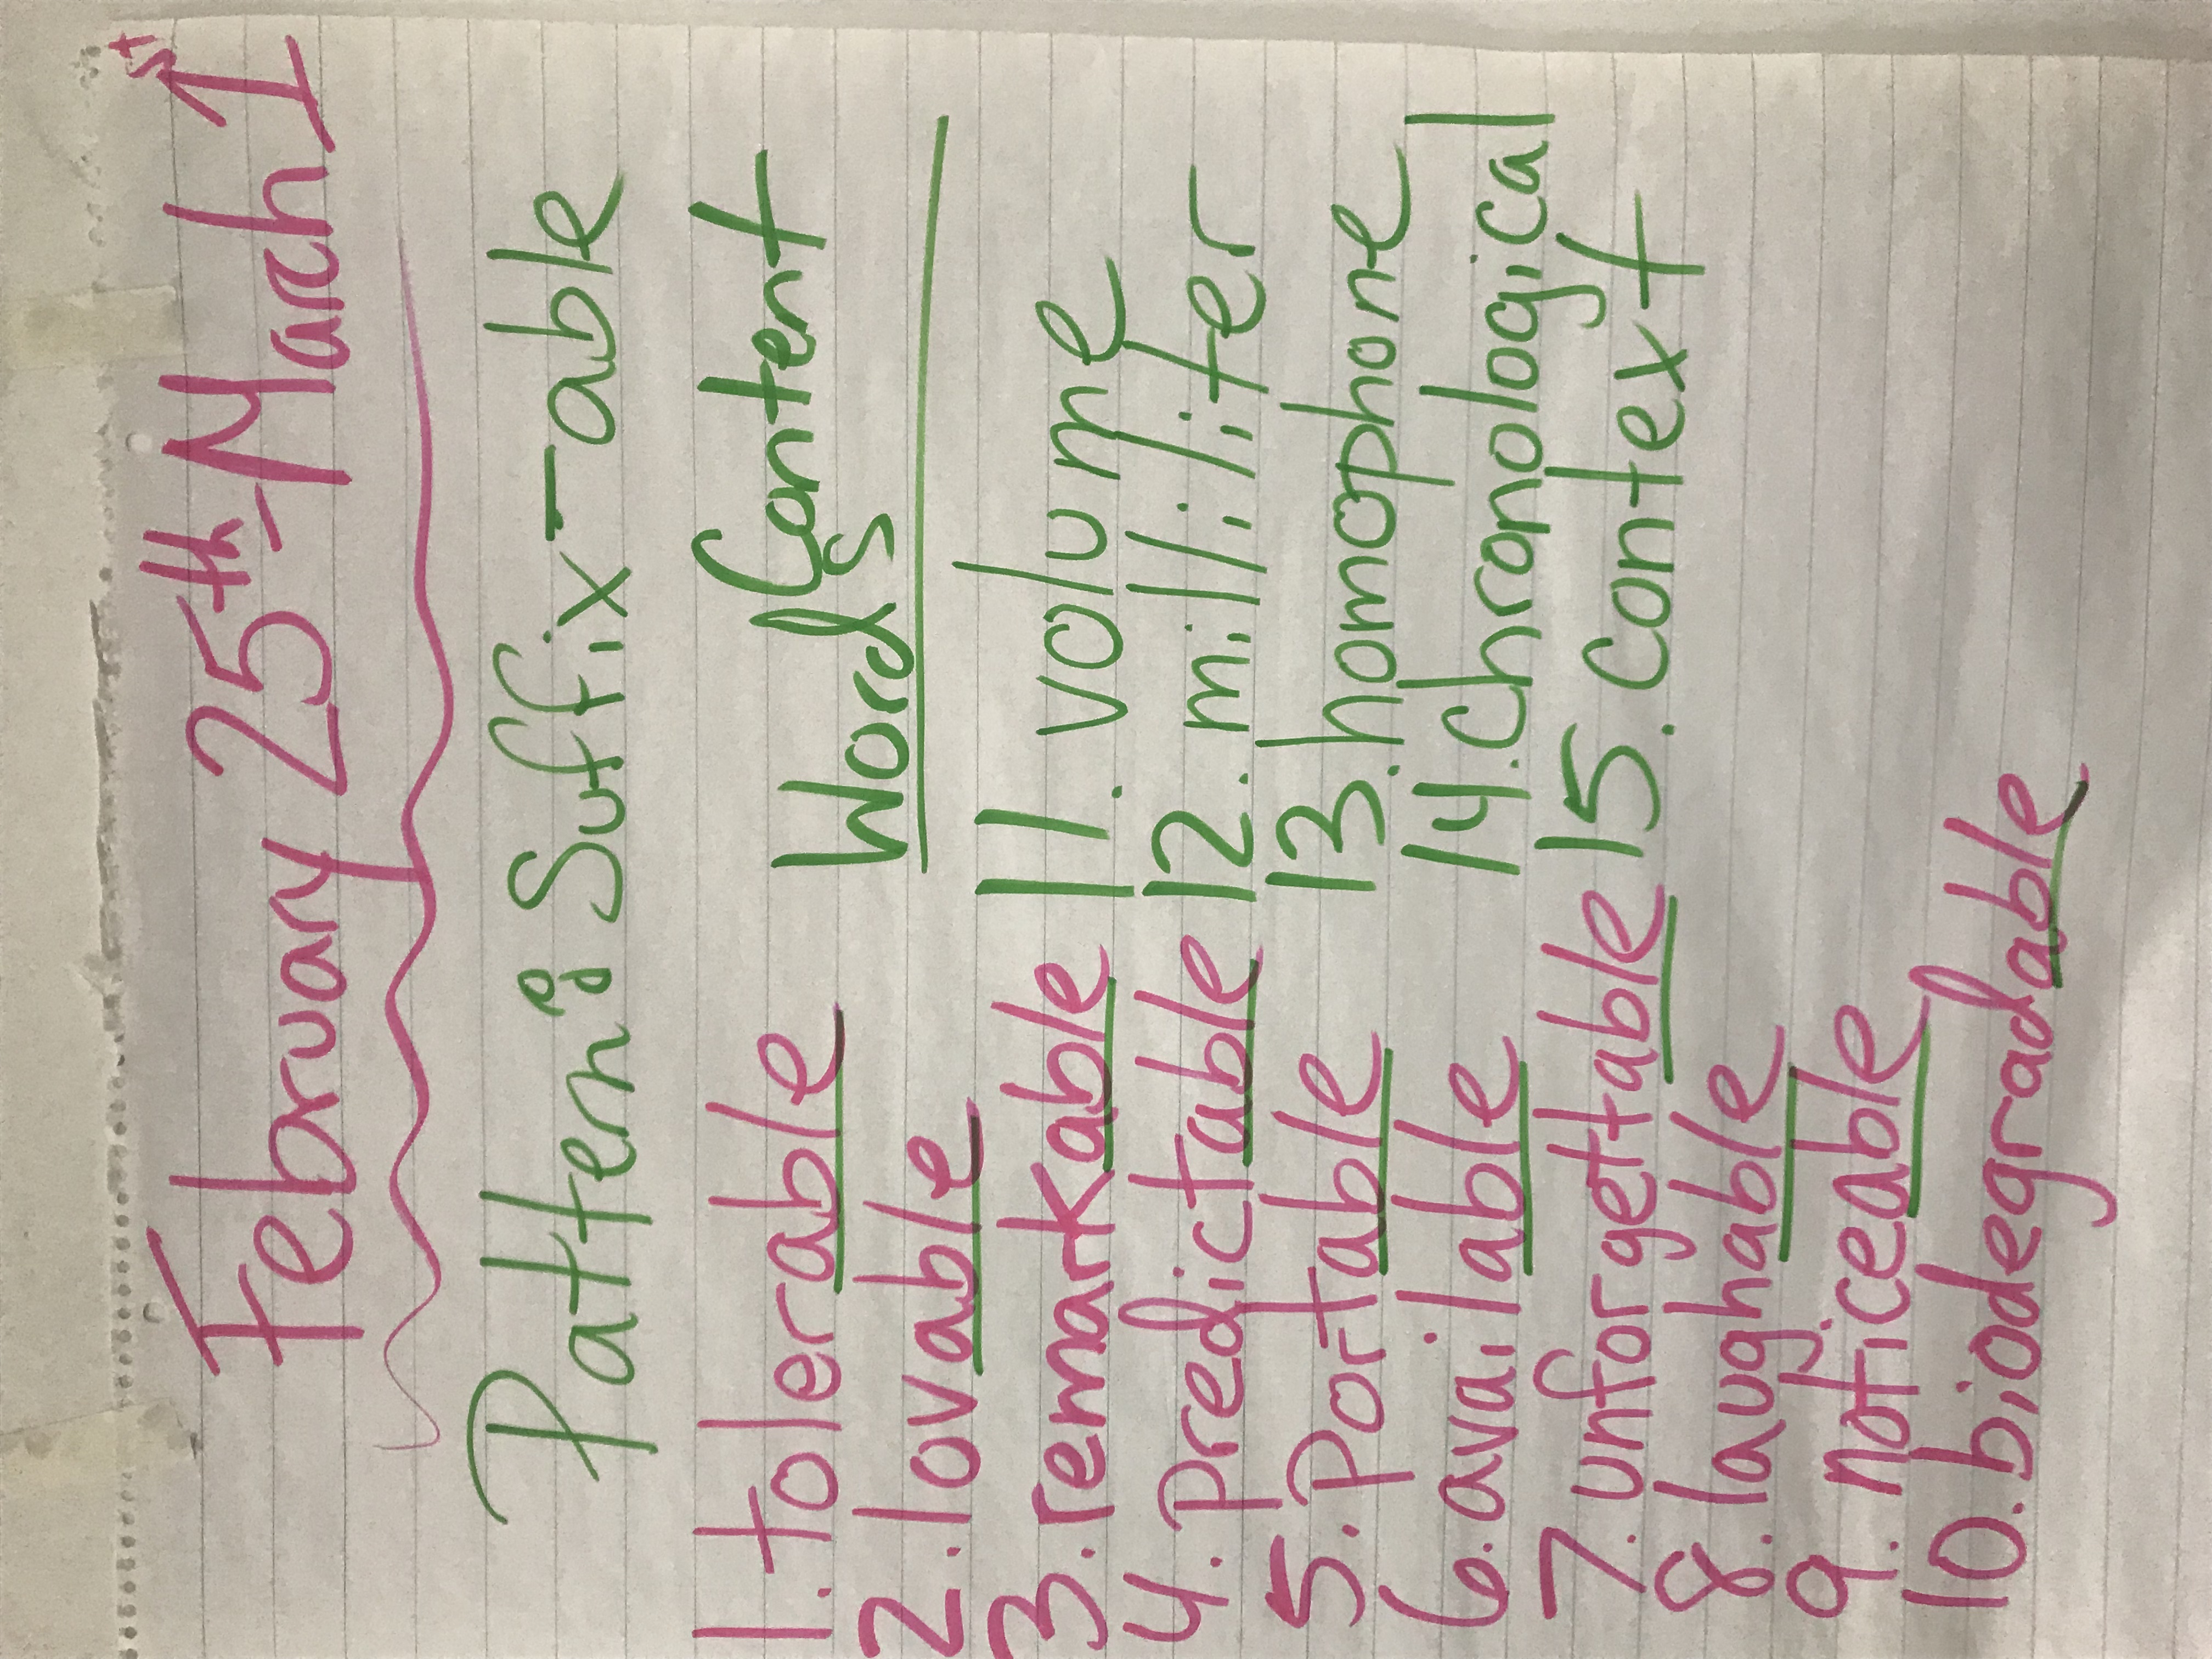 February 25th - March 1st
Pattern: Suffix -able
1. tolerable
2. lovable
3. remarkable
4. predictable
5. portable
6. available
7. unforgettable
8. laughable
9. noticeable
10. biodegradable
Content
Words
11. volume
12. milliliter
13. homophone
14. chronological
15. context